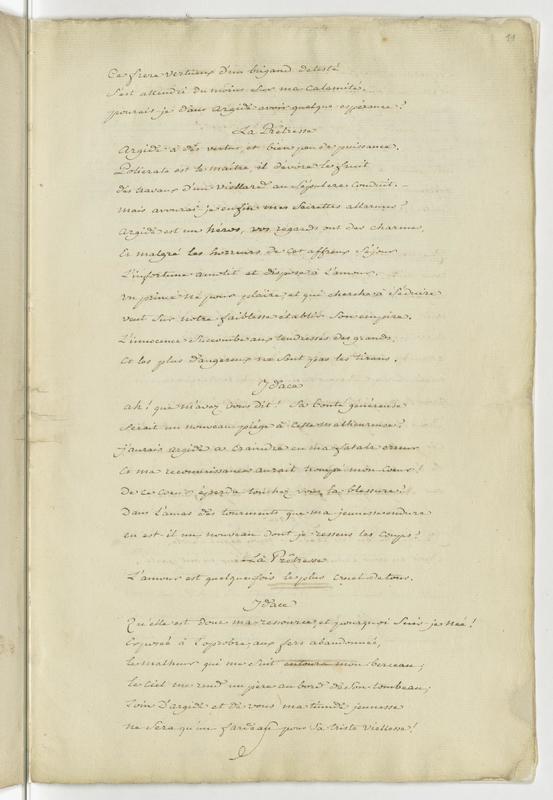 Ce frere vertueux d'un brigand detesté
s'est attendri du moins sur ma calamité,
pourais je dans argide avoir quelque esperance?
La Prêtresse
argide à des vertus, et bien peu de puissance.
Policrate est le maitre, il dévore le fruit
des travaux d'un viellard au sépulcre conduit.
mais avourai je enfin mes secrettes allarmes?
argide est un héros, vos regards ont des charmes,
et malgré les horreurs de cet affreux séjour
l'infortune amolit et dispose à l'amour.
un prince né pour plaire, et qui cherche à séduire
veut sur notre faiblesse établir son empire.
l'innocence succombe aux tendresses des grands,
et les plus dangereux ne sont pas les tirans.
Idace
ah! que m'avez vous dit! sa bonté généreuse
serait un nouveau piége à cette malheureuse?
j'aurais argide à craindre en ma fatale erreur
et ma reconnaissance aurait trompé mon cœur!
De ce cœur éperdu touchez vous la blessure?
Dans l'amas des tourments que ma jeunesse endure
en est-il un nouveau dont je ressens les coups?
La Prêtresse
L'amour est quelquefois le plus cruel de tous.
Idace
Qu'elle est donc ma ressource, et pourquoi suis-je née!
Exposée à l'oprobre, aux fers abandonnée,
le malheur qui me suit entoura mon berceau;
le ciel me rend un père au bord de son tombeau;
loin d'argide et de vous ma timide jeunesse
ne sera qu'un fardeau pour sa triste viellesse!